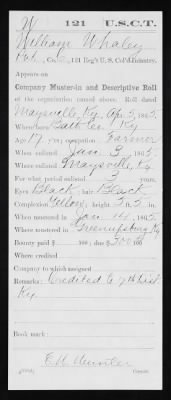 W 121 U.S.C.T.
William Whaley
Pvt., Co. , 121 Reg't U.S. Col'd Infantry.
Appears on
Company Muster-in and Descriptive Roll
of the organization named above. Roll dated
Maysville, Ky, Apr 3, 1865.
Where born Bath Co, Ky.
Age 17 y'rs; occupation Farmer
When enlisted Jan. 3, 1865.
Where enlisted Maysville, Ky.
For what period enlisted 3 years.
Eyes Black; hair Black
Complexion Yellow; height 5 ft. 5 in.
When mustered in Jan 14, 1865.
Where mustered in Greenupsburg Ky
Bounty paid $ 100; due $ 300 100
Where credited
Company to which assigned
Remarks: Credited to 9th Dist
Ky.
Book mark:
Copyist.